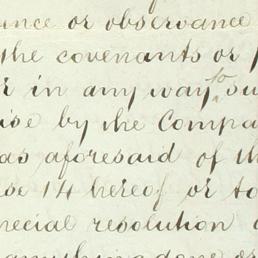 ance or observance
the covenants or
r in any way to su
ise by the Compa
as aforesaid of th
se 14 hereof or to
pecial resolution
anything done or